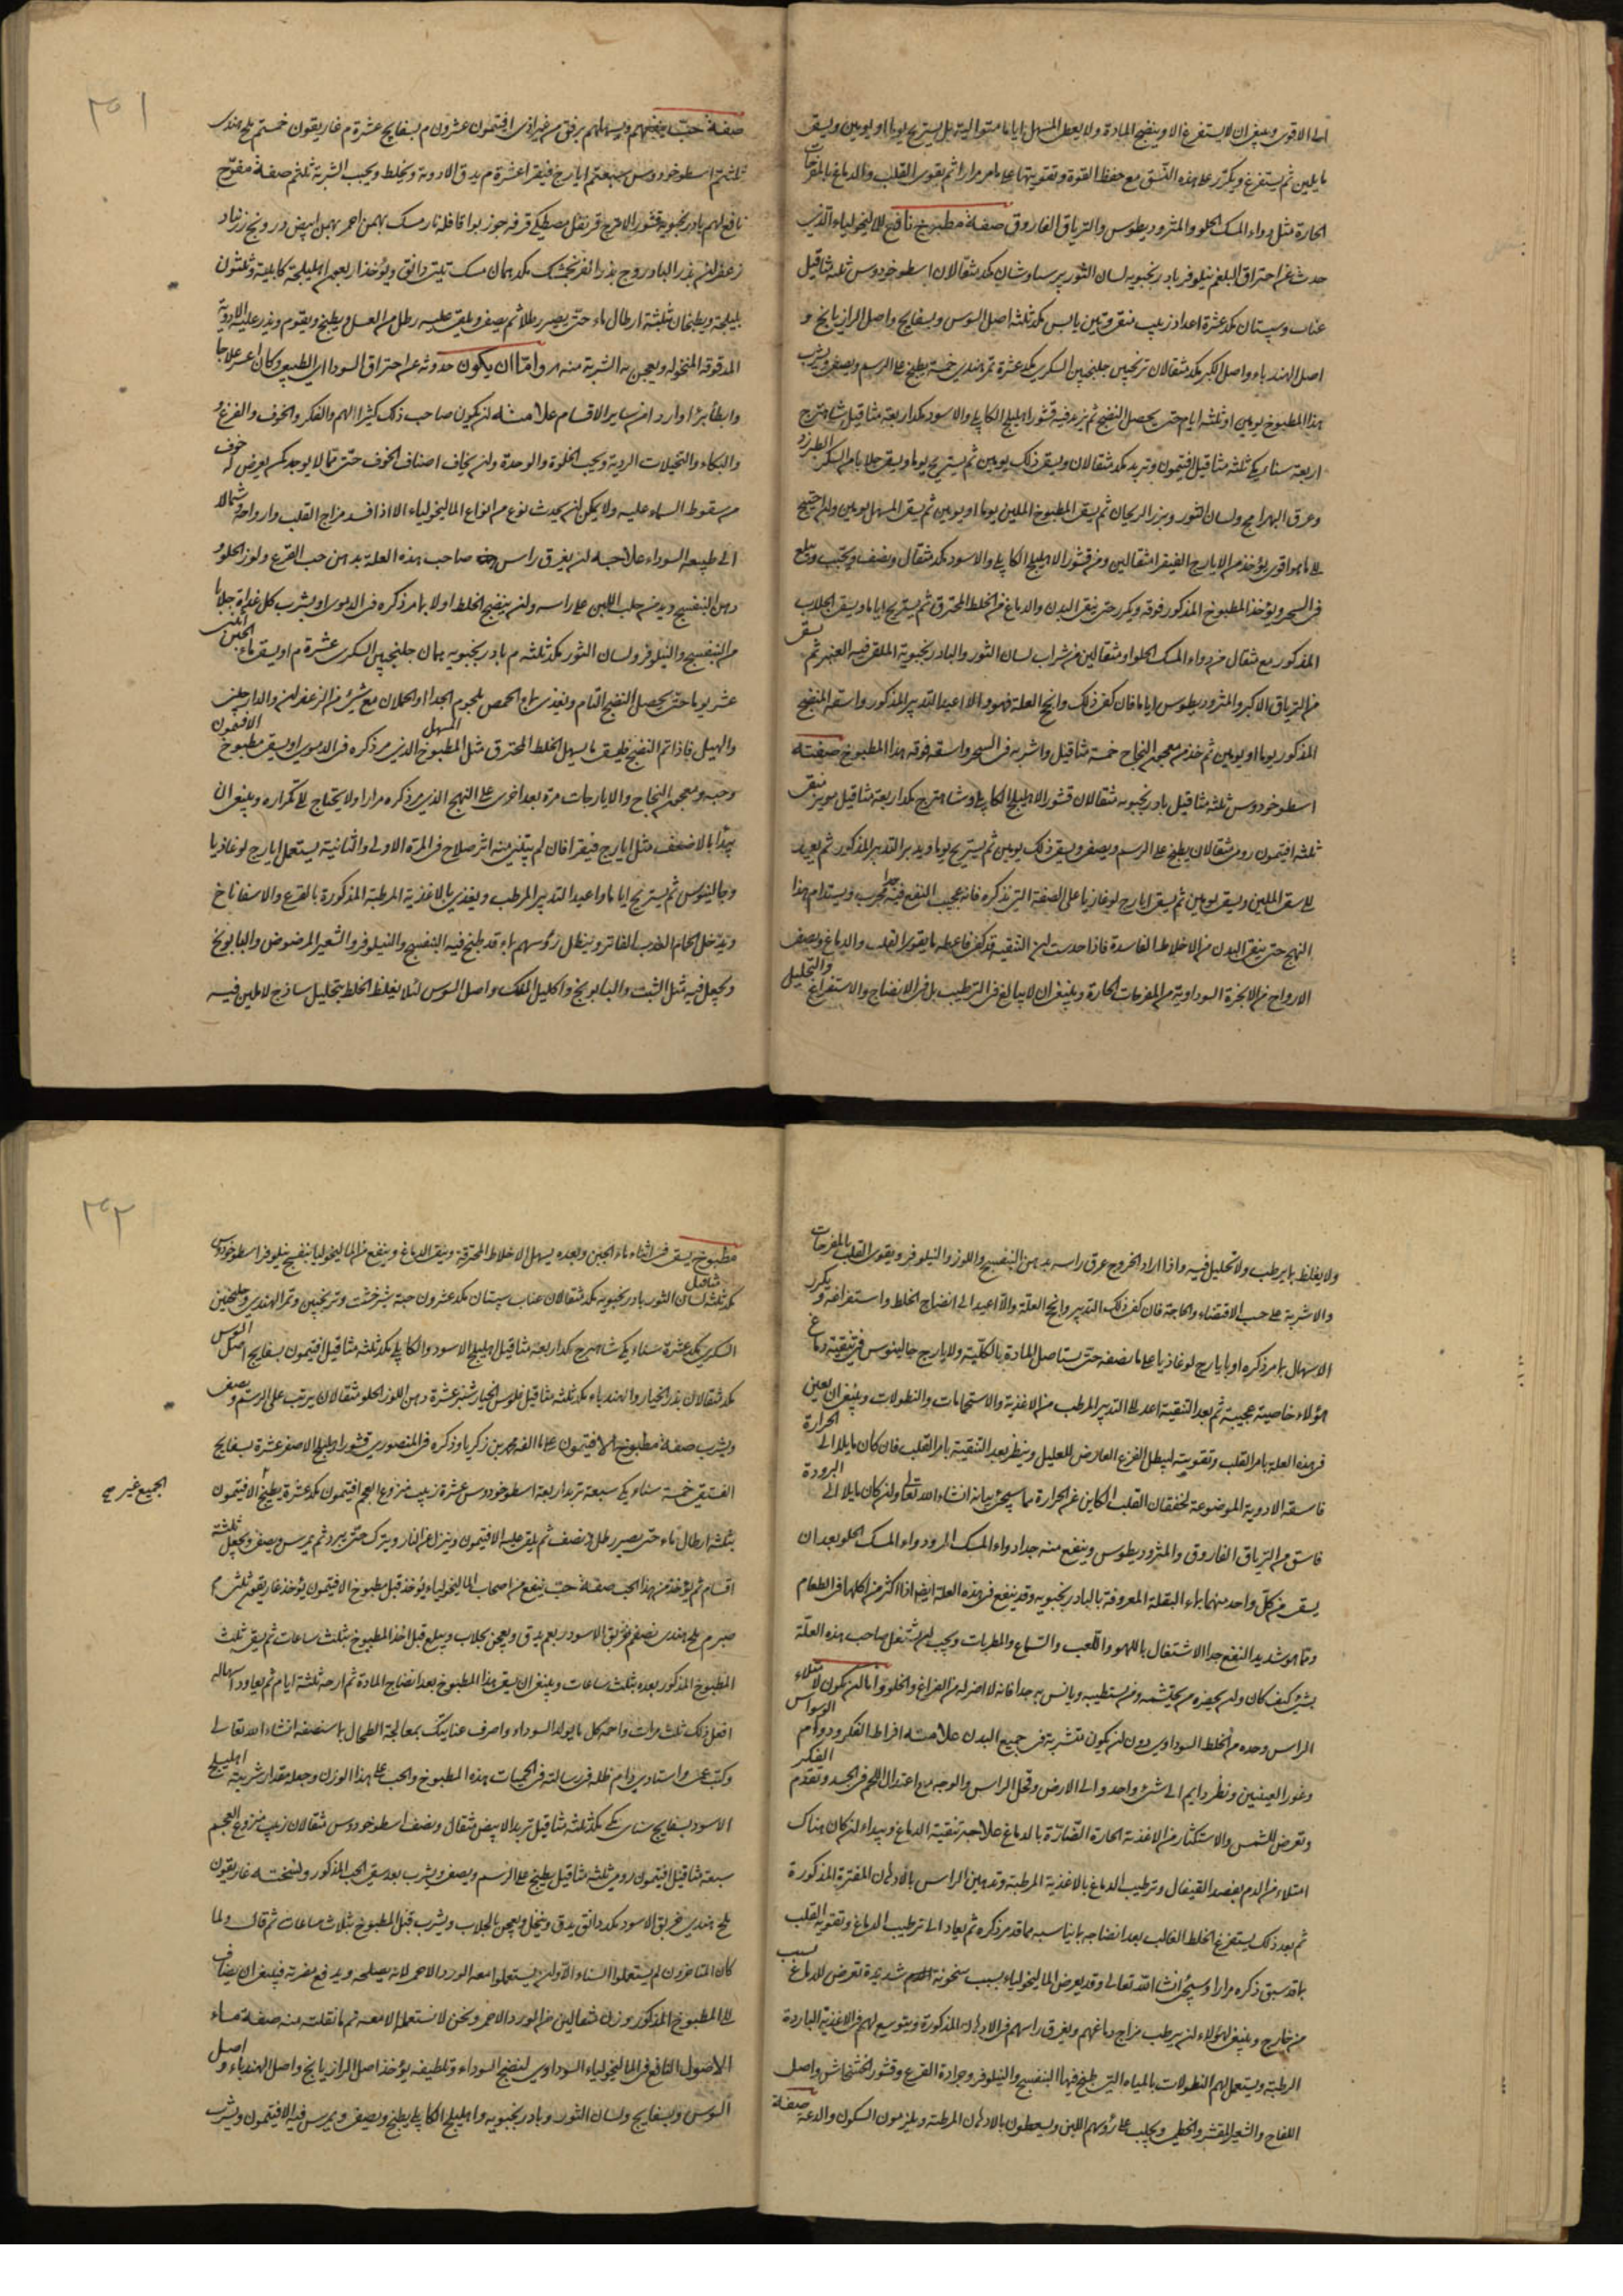 الى الاقوى وينبغى ان لا يستفرغ الا وينضج المادة ولا يعطى المسهل اياما متوالية بل يستريح يوما او يومين ويسقى
ما يلين ثم يستفرغ ويكرر على هذه النسق مع حفظ القوة وتقويتها على ما مر مرارا ثم يقوى القلب والدماغ بالمفرحات
الحارة مثل دواء المسك الحلو والمثروديطوس والترياق الفاروق صفة مطبوخ نافع للماليخولياء الذى
حدث عن احتراق البلغم نيلوفر بادرنجبويه لسان الثور پرسياوشان مكد مثقالان اسطوخودوس ثلثه مثاقيل
عناب وسپستان مكد عشرة اعداد زبيب منقى وتين يابس مكد ثلثه اصل السوس وبسفايج واصل الرازيانج و
اصل الهندباء واصل الكبر مكد مثقالان ترنجبين جلنجبين السكرى مكد عشرة تمر هندى خمسة يطبخ على الرسم ويصفى ويشرب
هذا المطبوخ يومين او ثلثه ايام حتى يحصل النضج ثم يزيد فيه قشور اهليلج الكابلى والاسود مكد اربعة مثاقيل شاهترج
اربعة سناء مكى ثلثه مثاقيل افتيمون وتربد مكد مثقالان ويسقى ذلك يومين ثم يستريح يوما ويسقى جلابا من السكر الطبرزد
وعرق البهرامج ولسان الثور وبزر الريحان ثم يسقى المطبوخ الملين يوما او يومين ثم يسقى المسهل يومين وان احتيج
الى ما هو اقوى يؤخذ من الايارج الفيقرا مثقالين ومن قشور الاهليلج الكابلى والاسود مكد مثقال ونصف ويحبب ويبلع
فى السحر ويؤخذ المطبوخ المذكور فوقه ويكرر حتى ينقى البدن والدماغ من الخلط المحترق ثم يستريح اياما ويسقى الجلاب
المذكور مع مثقال من دواء المسك الحلو او مثقالين من شراب لسان الثور والبادرنجبوية الملقى فيه العنبر ثم يسقى
من الترياق الاكبر والمثروديطوس اياما فان كفى ذلك وانجح العلة فهو والا اعيد التدبير المذكور واسقه المنضج
المذكور يوما او يومين ثم خذ من معجون النجاح خمسة مثاقيل واشربه فى السحر واسقه فوقه هذا المطبوخ صفته
اسطوخودوس ثلثه مثاقيل بادرنجبويه مثقالان قشور الاهليلج الكابلى وشاهترج مكد اربعة مثاقيل مويز منقى
ثلثه افتيمون رومى مثقالان يطبخ على الرسم ويصفى ويسقى ذلك يومين ثم يستريح يوما ويدبر التدبير المذكور ثم يعود
الى سقى الملين ويسقى يومين ثم يسقى ايارج لوغاذيا على الصفة التى نذكره فانه عجيب النفع فيه جدا مجرب ويستدام هذا
النهج حتى ينقى البدن من الاخلاط الفاسدة فاذا حدست ان التنقيه قد كفى فاعطه ما يقوى القلب والدماغ ويصفى
الارواح من الابخرة السوداوية من المفرحات الحارة وينبغى ان لا يبالغ فى الترطيب بل فى الانضاج والاستفراغ والتحليل
٣٥١
صفة حب ينفعهم ويسهلهم برفق من غير اذى افتيمون عشرون م بسفايج عشرة م غاريقون خمسة م ملح هندى
ثلثة م اسطوخودوس سبعة م ايارج فيقرا عشرة م يدق الادوية ويخلط ويحبب الشربة ثلثة م صفة مفرح
نافع لهم بادرنجبويه قشور الاترج قرنفل مصطكى قرفه جوز بوا قاقله نارمسك بهمن احمر بهمن ابيض درونج زرنباد
زعفران بذر البادروج بذر الفرنجمشك مكد درهمان مسك ثلثى دانق ويؤخذ اربعون اهليلجة كابلية وثلثون
بليلجة ويطبخان بثلثة ارطال ماء حتى يصير رطلا ثم يصفى ويلقى عليه رطل من العسل ويطبخ ويقوم ويذر عليه الادوية
المدقوقة المنخولة ويعجن به الشربة منه م واما ان يكون حدوثه عن احتراق السوداء الطبيعى وكان اعسر علاجا
وابطأ برءا واردا من ساير الاقسام علامته ان يكون صاحب ذلك كثير الهم والفكر والخوف والفزع
والبكاء والتخيلات الردية ويحب الخلوة والوحدة وان يخاف اصناف الخوف حتى مما لا يوجد كمن يعرض له خوف
من سقوط السماء عليه ولا يمكن ان يحدث نوع من انواع الماليخولياء الا اذا فسد مزاج القلب وارواحه مثالا
الى طبيعه السوداء علاجه ان يغرق راس صاحب هذه العلة بدهن حب القرع ولوز الحلو
ودهن البنفسج ويديم حلب اللبن على راسه وان ينضج الخلط اولا بما مر ذكره فى الدموى او يشرب كل غداة جلابا
من البنفسج والنيلوفر ولسان الثور مكد ثلثه م بادرنجبويه درهمان جلنجبين السكرى عشرة م او يسقى ماء الجبن اثنى
عشر يوما حتى يحصل النضج التام ويغذى بماء الحمص بلحوم الجداء والحملان مع شئ من الزعفران والدارچينى
والهيل فاذا تم النضج فليسق ما يسهل الخلط المحترق مثل المطبوخ المسهل الذى مر ذكره فى الدموى او يسقى مطبوخ الافتيمون
وحبه ومعجون النجاح والايارجات مرة بعد اخرى على النهج الذى مر ذكره مرارا ولا يحتاج الى تكراره وينبغى ان
يبدأ بالاضعف مثل ايارج فيقرا فان لم يتبين منه اثر صلاح فى المرة الاولى والثانية يستعمل ايارج لوغاذيا
وجالينوس ثم يستريح اياما واعيد التدبير المرطب ويغذى بالاغذية المرطبة المذكورة بالقرع والاسفاناخ
ويدخل الحمام العذب الفاتر وينطل رؤسهم بماء قد طبخ فيه البنفسج والنيلوفر والشعير المرضوض والبابونج
ويجعل فيه مثل الشبت والبابونج واكليل الملك واصل السوس لئلا يغلظ الخلط بتحليل ساذج لا تليين فيه
ولا يغلظ بما يرطب ولا تحليل فيه واذا اراد الخروج عرق راسه بدهن البنفسج واللوز والنيلوفر ويقوى القلب بالمفرحات
والاشربة على حسب الاقتضاء والحاجة فان كفى ذلك التدبير وانجح العلة والا اعيد الى انضاج الخلط واستفراغه ويكرر
الاسهال بما مر ذكره او بايارج لوغاذيا على ما نصفه حتى يستاصل المادة بالكلية ولايارج جالينوس فى تنقية دماغ
هؤلاء خاصية عجيبة ثم بعد التنقية اعد الى التدبير المرطب من الاغذية والاستحمامات والنطولات وينبغى ان يعنى
فى هذه العلة بامر القلب وتقويته ليبطل الفزع العارض للعليل وينظر بعد التنقية بامر القلب فان كان مايلا الى الحرارة
فاسقه الادوية الموضوعة لخفقان القلب الكاين عن الحرارة مما سيجئ بيانه انشاء الله تعالى وان كان مايلا الى البرودة
فاسق من الترياق الفاروقى والمثروديطوس وينفع منه جدا دواء المسك المر ودواء المسك الحلو بعد ان
يسقى من كل واحد منهما بماء البقلة المعروفة بالبادرنجبويه وقد ينفع فى هذه العلة ايضا اذا اكثر من اكلها فى الطعام
ومما هو شديد النفع جدا الاشتغال باللهو واللعب والسماع والمطربات ويجب ان يشتغل صاحب هذه العلة
بشئ كيف كان وان يحضره من يحتشمه ومن يستطيبه ويانس به جدا فانه لا اضر له من الفراغ والخلوة واما ان يكون لامتلاء
الراس وحده من الخلط السوداوى دون ان يكون منتشرة فى جميع البدن علامته افراط الفكر ودوام الوسواس
وغور العينين ونظر دايم الى شئ واحد والى الارض وقحل الراس والوجه مع اعتدال اللحم فى الجسد وتقدم الفكر
وتعرض للشمس والاستكثار من الاغذية الحارة الضارة بالدماغ علاجه تنقية الدماغ ويبداء ان كان هناك
امتلاء من الدم بفصد القيفال وترطيب الدماغ بالاغذية المرطبة وتدهين الراس بالادهان المفترة المذكورة
ثم بعد ذلك يستفرغ الخلط الغالب بعد انضاجه بما يناسبه مما قد مر ذكره ثم يعاد الى ترطيب الدماغ وتقوية القلب
بما قد سبق ذكره مرارا وسيجئ انشا الله تعالى وقد يعرض الماليخولياء بسبب سخونة شديدة تعرض للدماغ بسبب
من خارج وينبغى لهؤلاء ان يرطب مزاج دماغهم ويغرق راسهم فى الادهان المذكورة ويتوسع لهم فى الاغذية الباردة
الرطبة ويستعمل لهم النطولات بالمياه التى طبخ فيها البنفسج والنيلوفر وجرادة القرع وقشور الخشخاش واصل
اللفاح والشعير المقشر والخطمى ويحلب على رؤسهم اللبن ويسعطون بالادهان المرطبه ويلزمون السكون والدعة صفة
٣٥٢
مطبوخ يسقى فى اثناء ماء الجبن وبعده يسهل الاخلاط المحترقة وينقى الدماغ وينفع من الماليخوليا بنفسج نيلوفر اسطوخودوس
مكد ثلثه مثاقيل لسان الثور بادرنجبويه مكد مثقالان عناب سپستان مكد عشرون حبة شيرخشت وترنجبين وتمر الهندى وجلنجبين
السكرى مكد عشرة سناء مكى شاهترج مكد اربعة مثاقيل اهليلج الاسود والكابلى مكد ثلثه مثاقيل افتيمون بسفايج اصل السوس
مكد مثقالان بذر الخيار والهندباء مكد ثلثه مثاقيل فلوس الخيارشنبر عشرة دهن اللوز الحلو مثقالان يرتب على الرسم ويصفى
ويشرب صفة مطبوخ الافتيمون على ما الفه محمد بن زكريا وذكره فى المنصورى قشور اهليلج الاصفر عشرة بسفايج
الفستقى خمسة سناء مكى سبعة تربد اربعة اسطوخودوس عشرة زبيب منزوع العجم افتيمون مكد عشرة يطبخ الافتيمون
الجميع غير صح
بثلثه ارطال ماء حتى يصير رطل ونصف ثم يلقى عليه الافتيمون وينزل عن النار ويترك حتى يبرد ثم يمرس ويصفى ويجعل ثلثة
اقسام ثم يؤخذ من هذا الحب صفة حب ينفع من اصحاب الماليخولياء يؤخذ قبل مطبوخ الافتيمون يؤخذ غاريقون ثلثى م
صبر م ملح هندى نصف م خربق الاسود ربع م يدق ويعجن بجلاب ويبلع قبل اخذ المطبوخ بثلث ساعات ثم يسقى ثلث
المطبوخ المذكور بعده بثلث ساعات وينبغى ان يسقى هذا المطبوخ بعد انضاج المادة ثم ارحه ثلثة ايام ثم يعاود اسهاله
افعل ذلك ثلث مرات واحذر كل ما يولد السوداء واصرف عنايتك بمعالجة الطحال بما سنصفه انشاء الله تعالى
وكتب عمى واستادى دام ظله فى رسالته فى الحميات هذه المطبوخ والحب على هذا الوزن وجعله مقدار شربة اهليلج
الاسود بسفايج سناى مكى مكد ثلثه مثاقيل تربد الابيض مثقال ونصف اسطوخودوس مثقالان زبيب منزوع العجم
سبعة مثاقيل افتيمون رومى ثلثه مثاقيل يطبخ على الرسم ويصفى ويشرب بعد سقى الحب المذكور ونسخته غاريقون
ملح هندى خربق الاسود مكد دانق يدق وينخل ويعجن بالجلاب ويشرب قبل المطبوخ بثلاث ساعات ثم قال ولما
كان المتاخرون لم يستعملوا السناء الا وان يستعملوا معه الورد الاحمر لانه يصلحه ويدفع مضرته فينبغى ان يضاف
الى المطبوخ المذكور وزن مثقالين من الورد الاحمر ونحن لا نستعمله الا معه تم ما نقلت منه صفة ماء
الاصول النافع فى الماليخولياء السوداوى لينضج السوداء وتلطيفه يؤخذ اصل الرازيانج واصل الهندباء واصل
السوس وبسفايج ولسان الثور وبادرنجبويه واهليلج الكابلى يطبخ ويصفى ويمرس فيه الافتيمون ويشرب